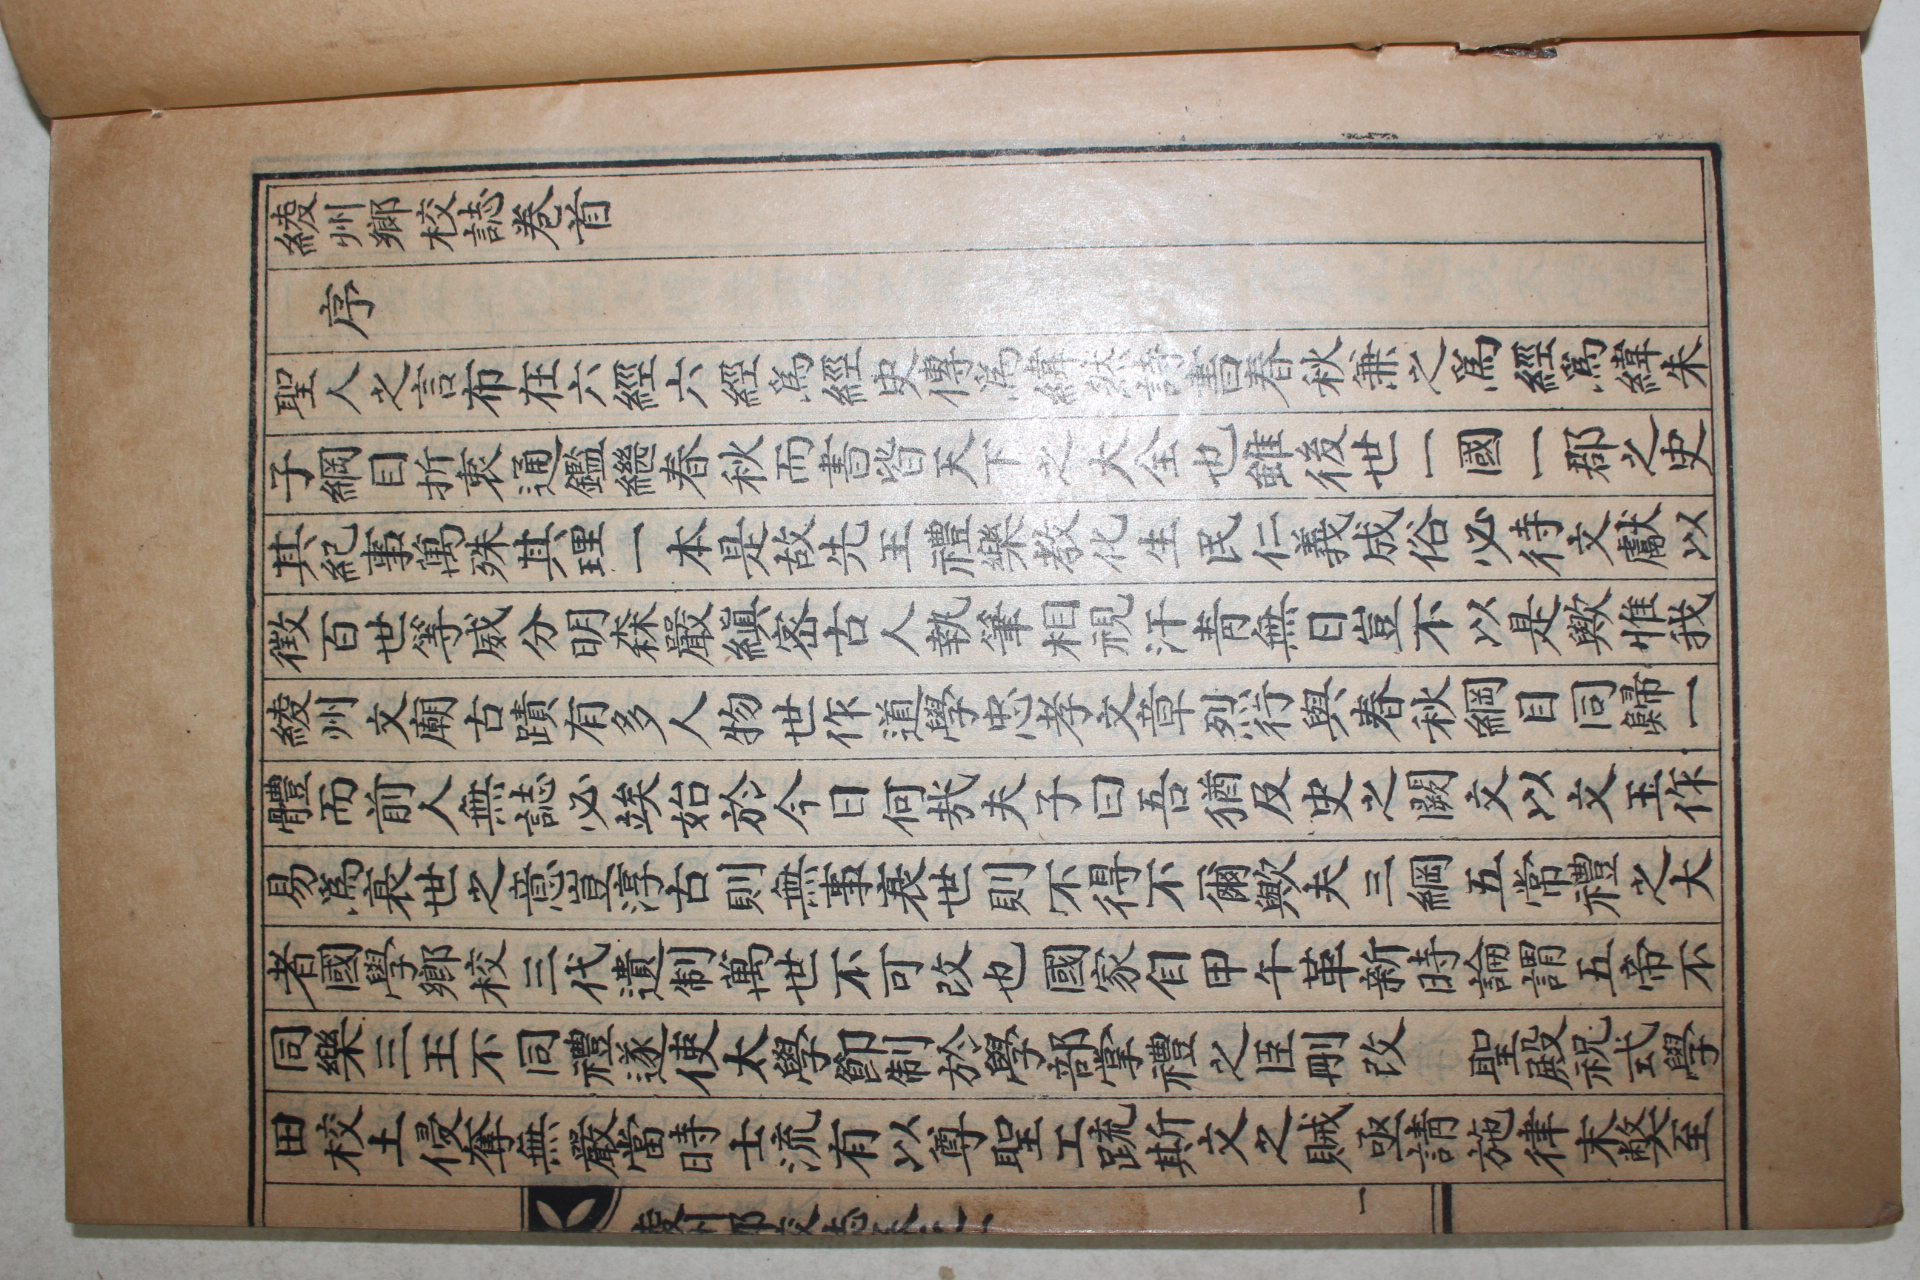 綾州鄉校誌卷首
序
聖人之言布在六經六經爲經史傳爲緯然詩書春秋兼之爲經爲緯朱
子綱目折衷通鑑繼春秋而書皆天下之大全也雖後世一國一郡之史
其紀事萬殊其理一本是故先王禮樂教化生民仁義成俗必待文獻以
徵百世等威分明森嚴縝密古人執筆相視汗靑無日豈不以是歟惟我
綾州文廟古蹟有多人物世作道學忠孝文章烈行與春秋綱目同歸一
體而前人無誌必竢始於今日何㢤夫子曰吾猶及史之闕文以文王作
易爲衰世之意豈淳古則無事衰世則不得不爾歟夫三綱五常禮之大
者國學鄉校三代遺制萬世不可改也國家自甲午革新時論謂五帝不
同樂三王不同禮遂使太學節制於學部掌禮之臣刪改 聖殿祝式學
田校土侵奪無嚴當時士流有以尊聖工疏斯文之賊亟請施律末獘至
綾州鄉校誌卷之一
一